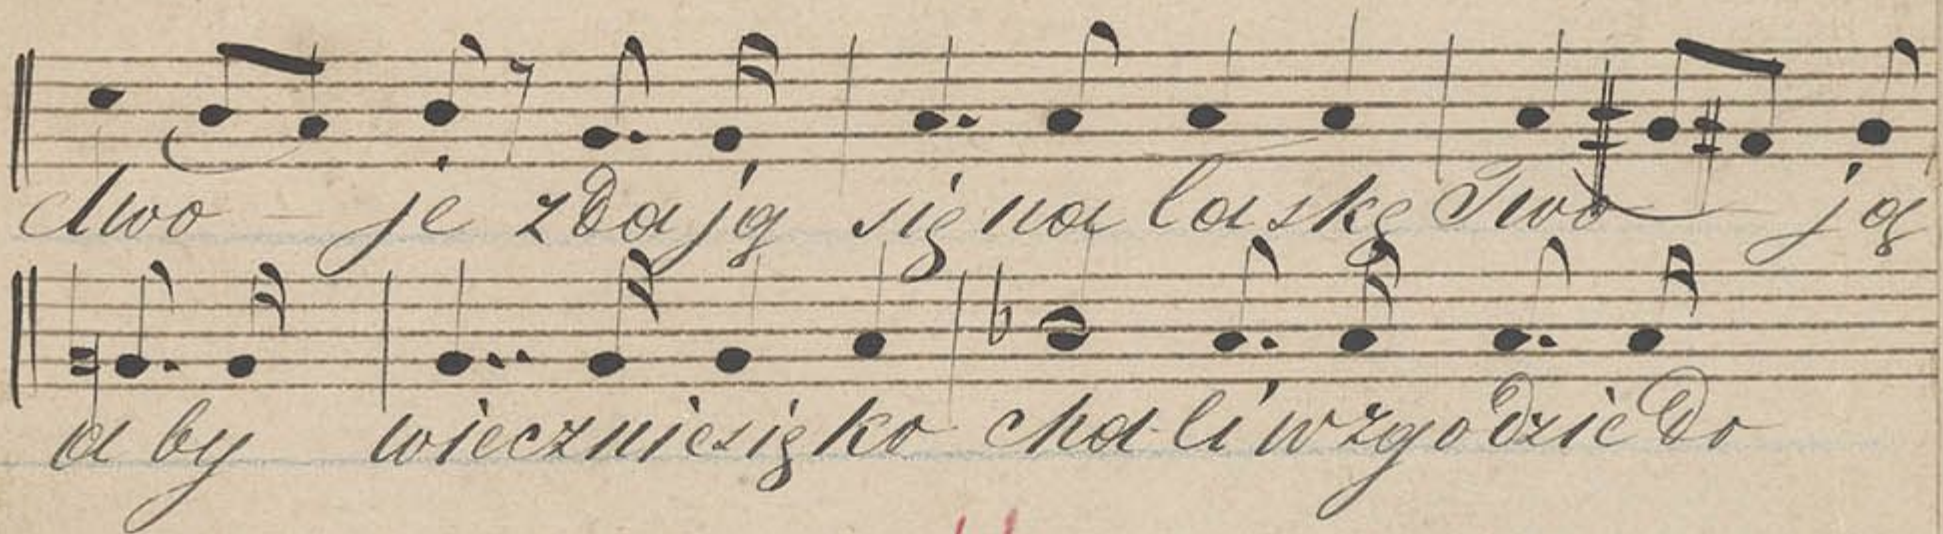 dwo - je zdają się na laskę Two ją
a by wiecznie się ko cha li w zgo dzie do